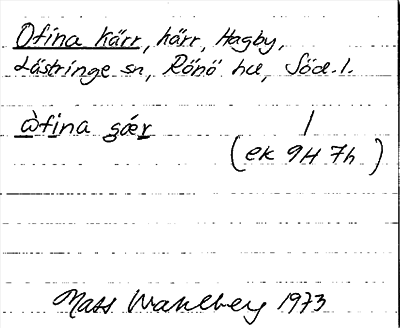 Ofina kärr, kärr, Hagby,
Lästringe sn, Rönö hd, Söd.l.
ὼfina ɡæ̨r /
(ek 9H 7h)
Mats Wahlberg 1973